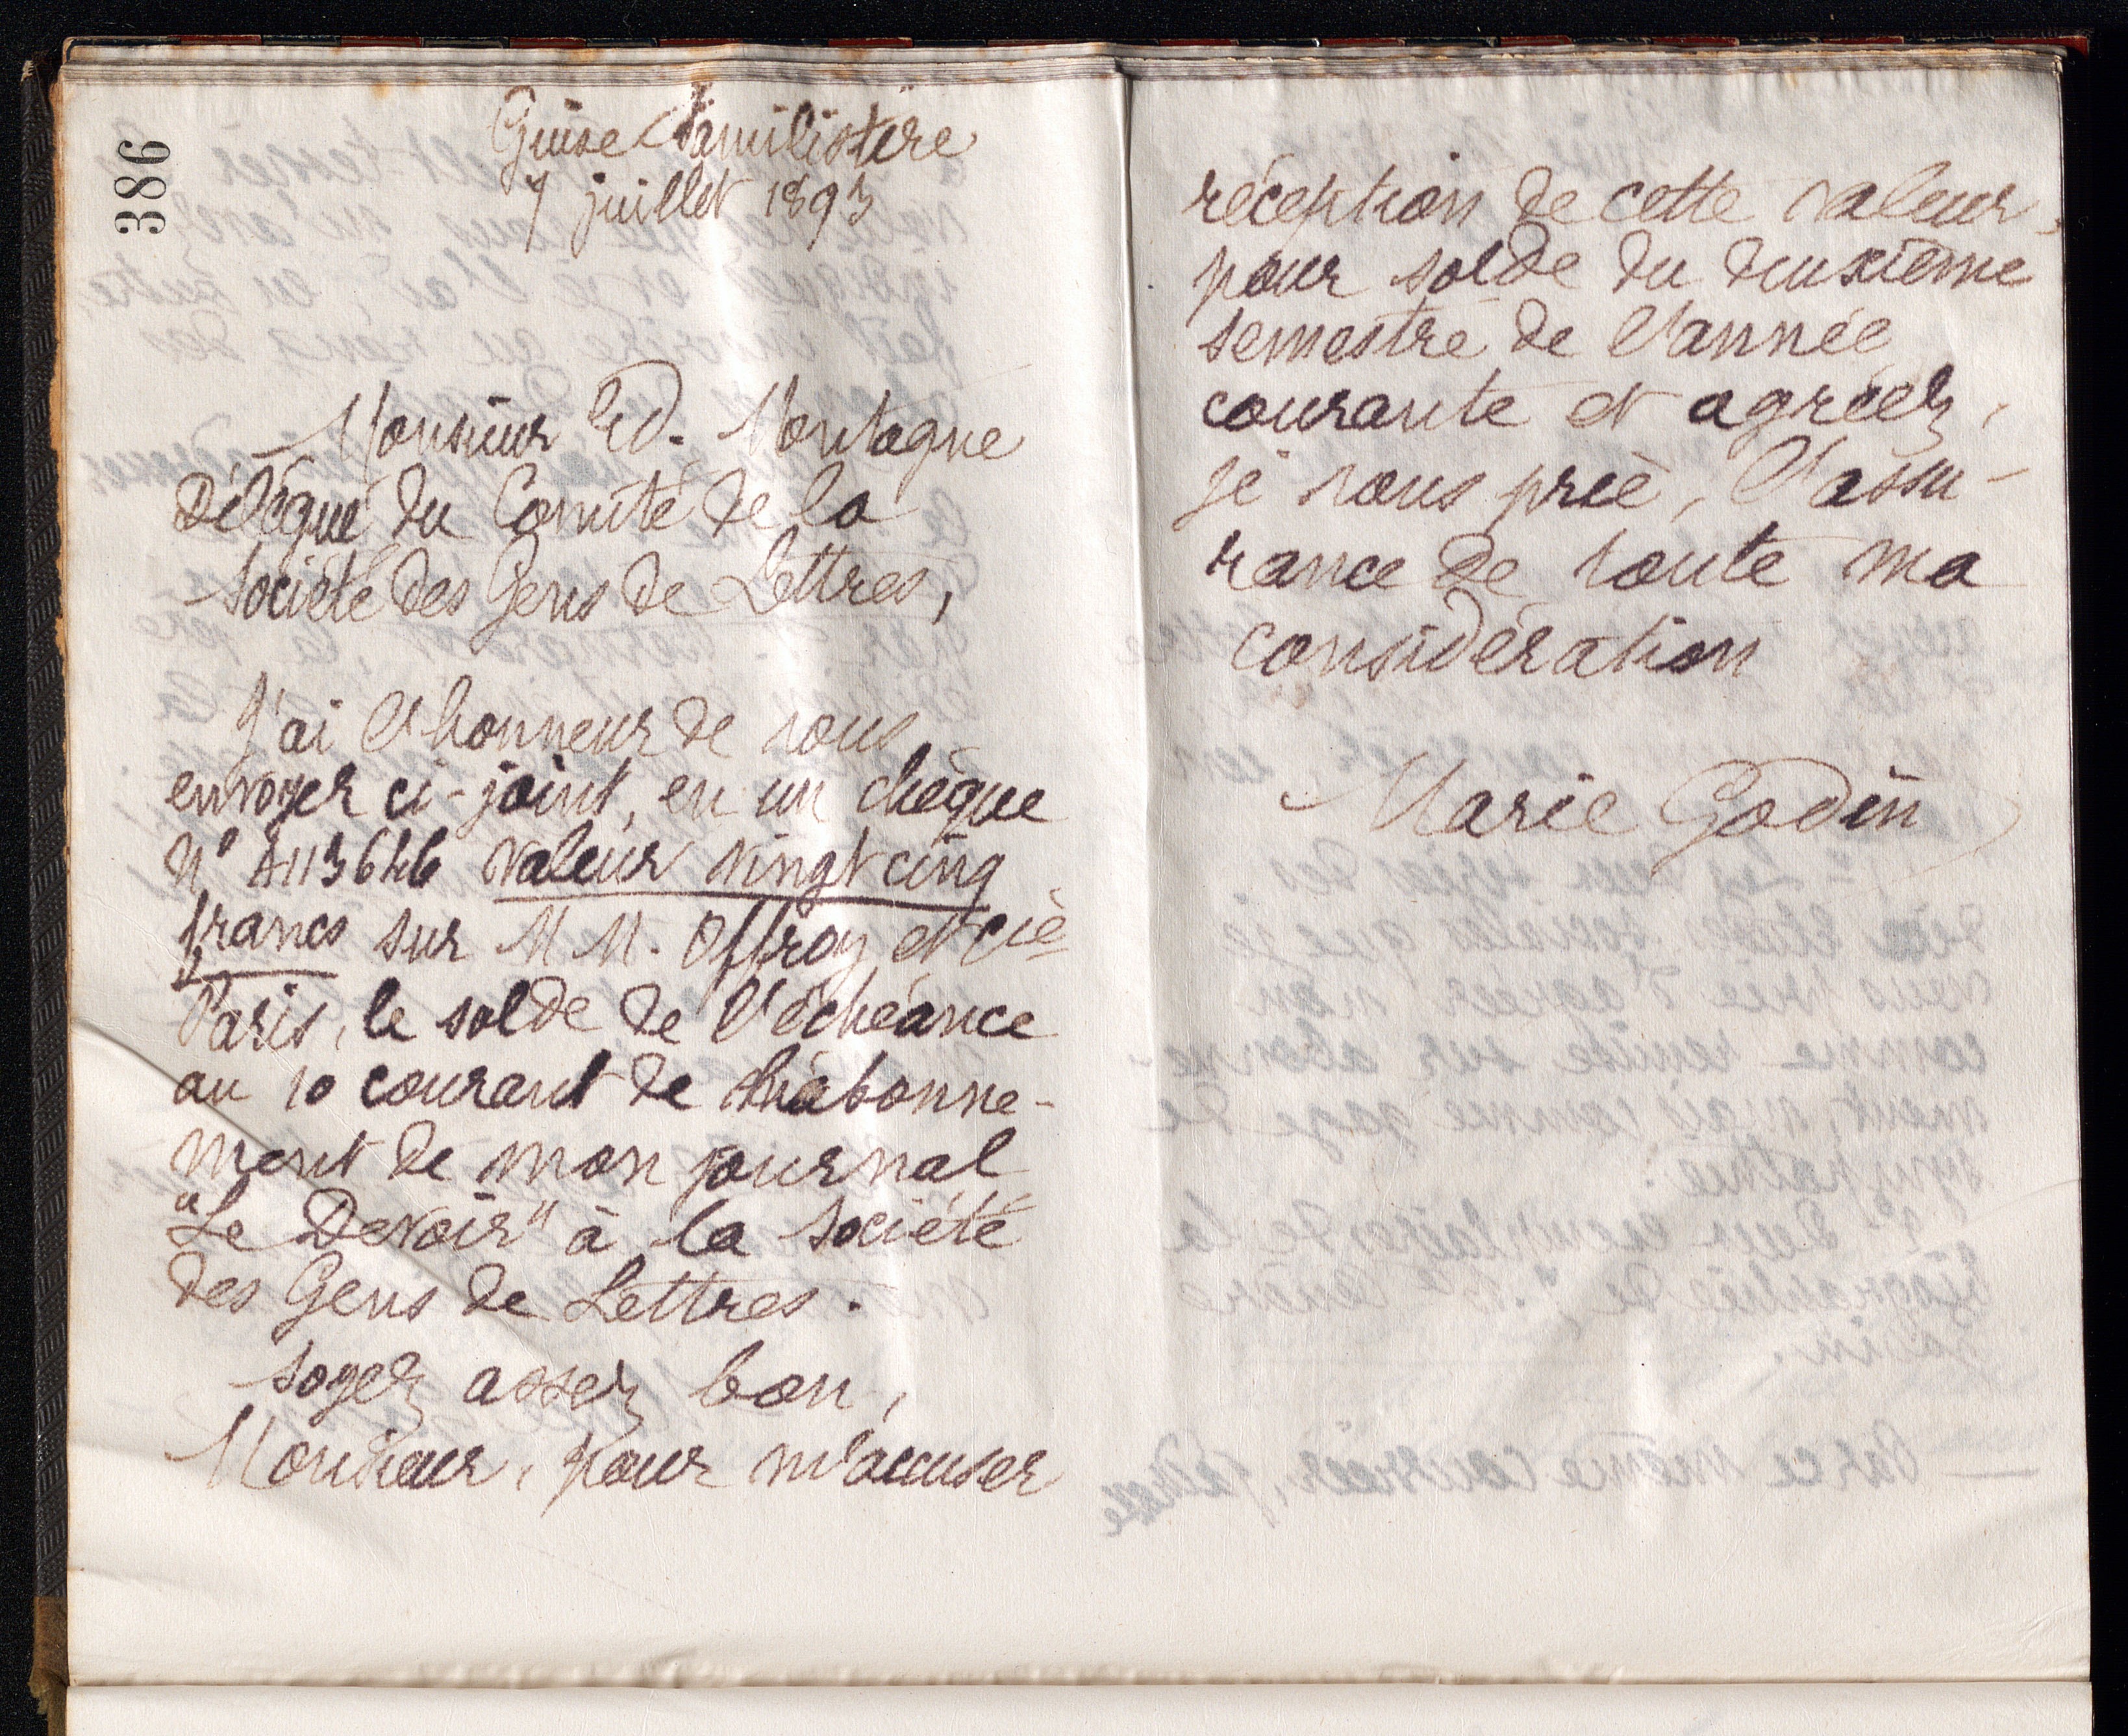 386
Guise Familistère
7 juillet 1893
Monsieur Ed. Montagne
Délégué du Comité de la
Société des Gens de Lettres,
J'ai l'honneur de vous
envoyer ci-joint, en un chèque
N° A113646 valeur vingt cinq
francs sur M M. Offroy et Cie
Paris, le solde de l'échéance
au 10 courant de l'abonne-
ment de mon journal
"Le Devoir" à la Société
des Gens de Lettres.
Soyez assez bon,
Monsieur, pour m'accuser
réception de cette valeur,
pour solde du deuxième
semestre de l'année
courante et agréez,
je vous prie, l'assu-
rance de toute ma
considération
Marie Godin